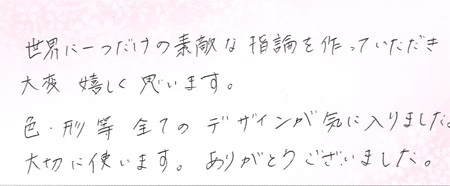 世界に一つだけの素敵な指論を作っていただき
大変 嬉しく思います。
色・形等 全てのデザインが気に入りました。
大切に使います。ありがとうございました。